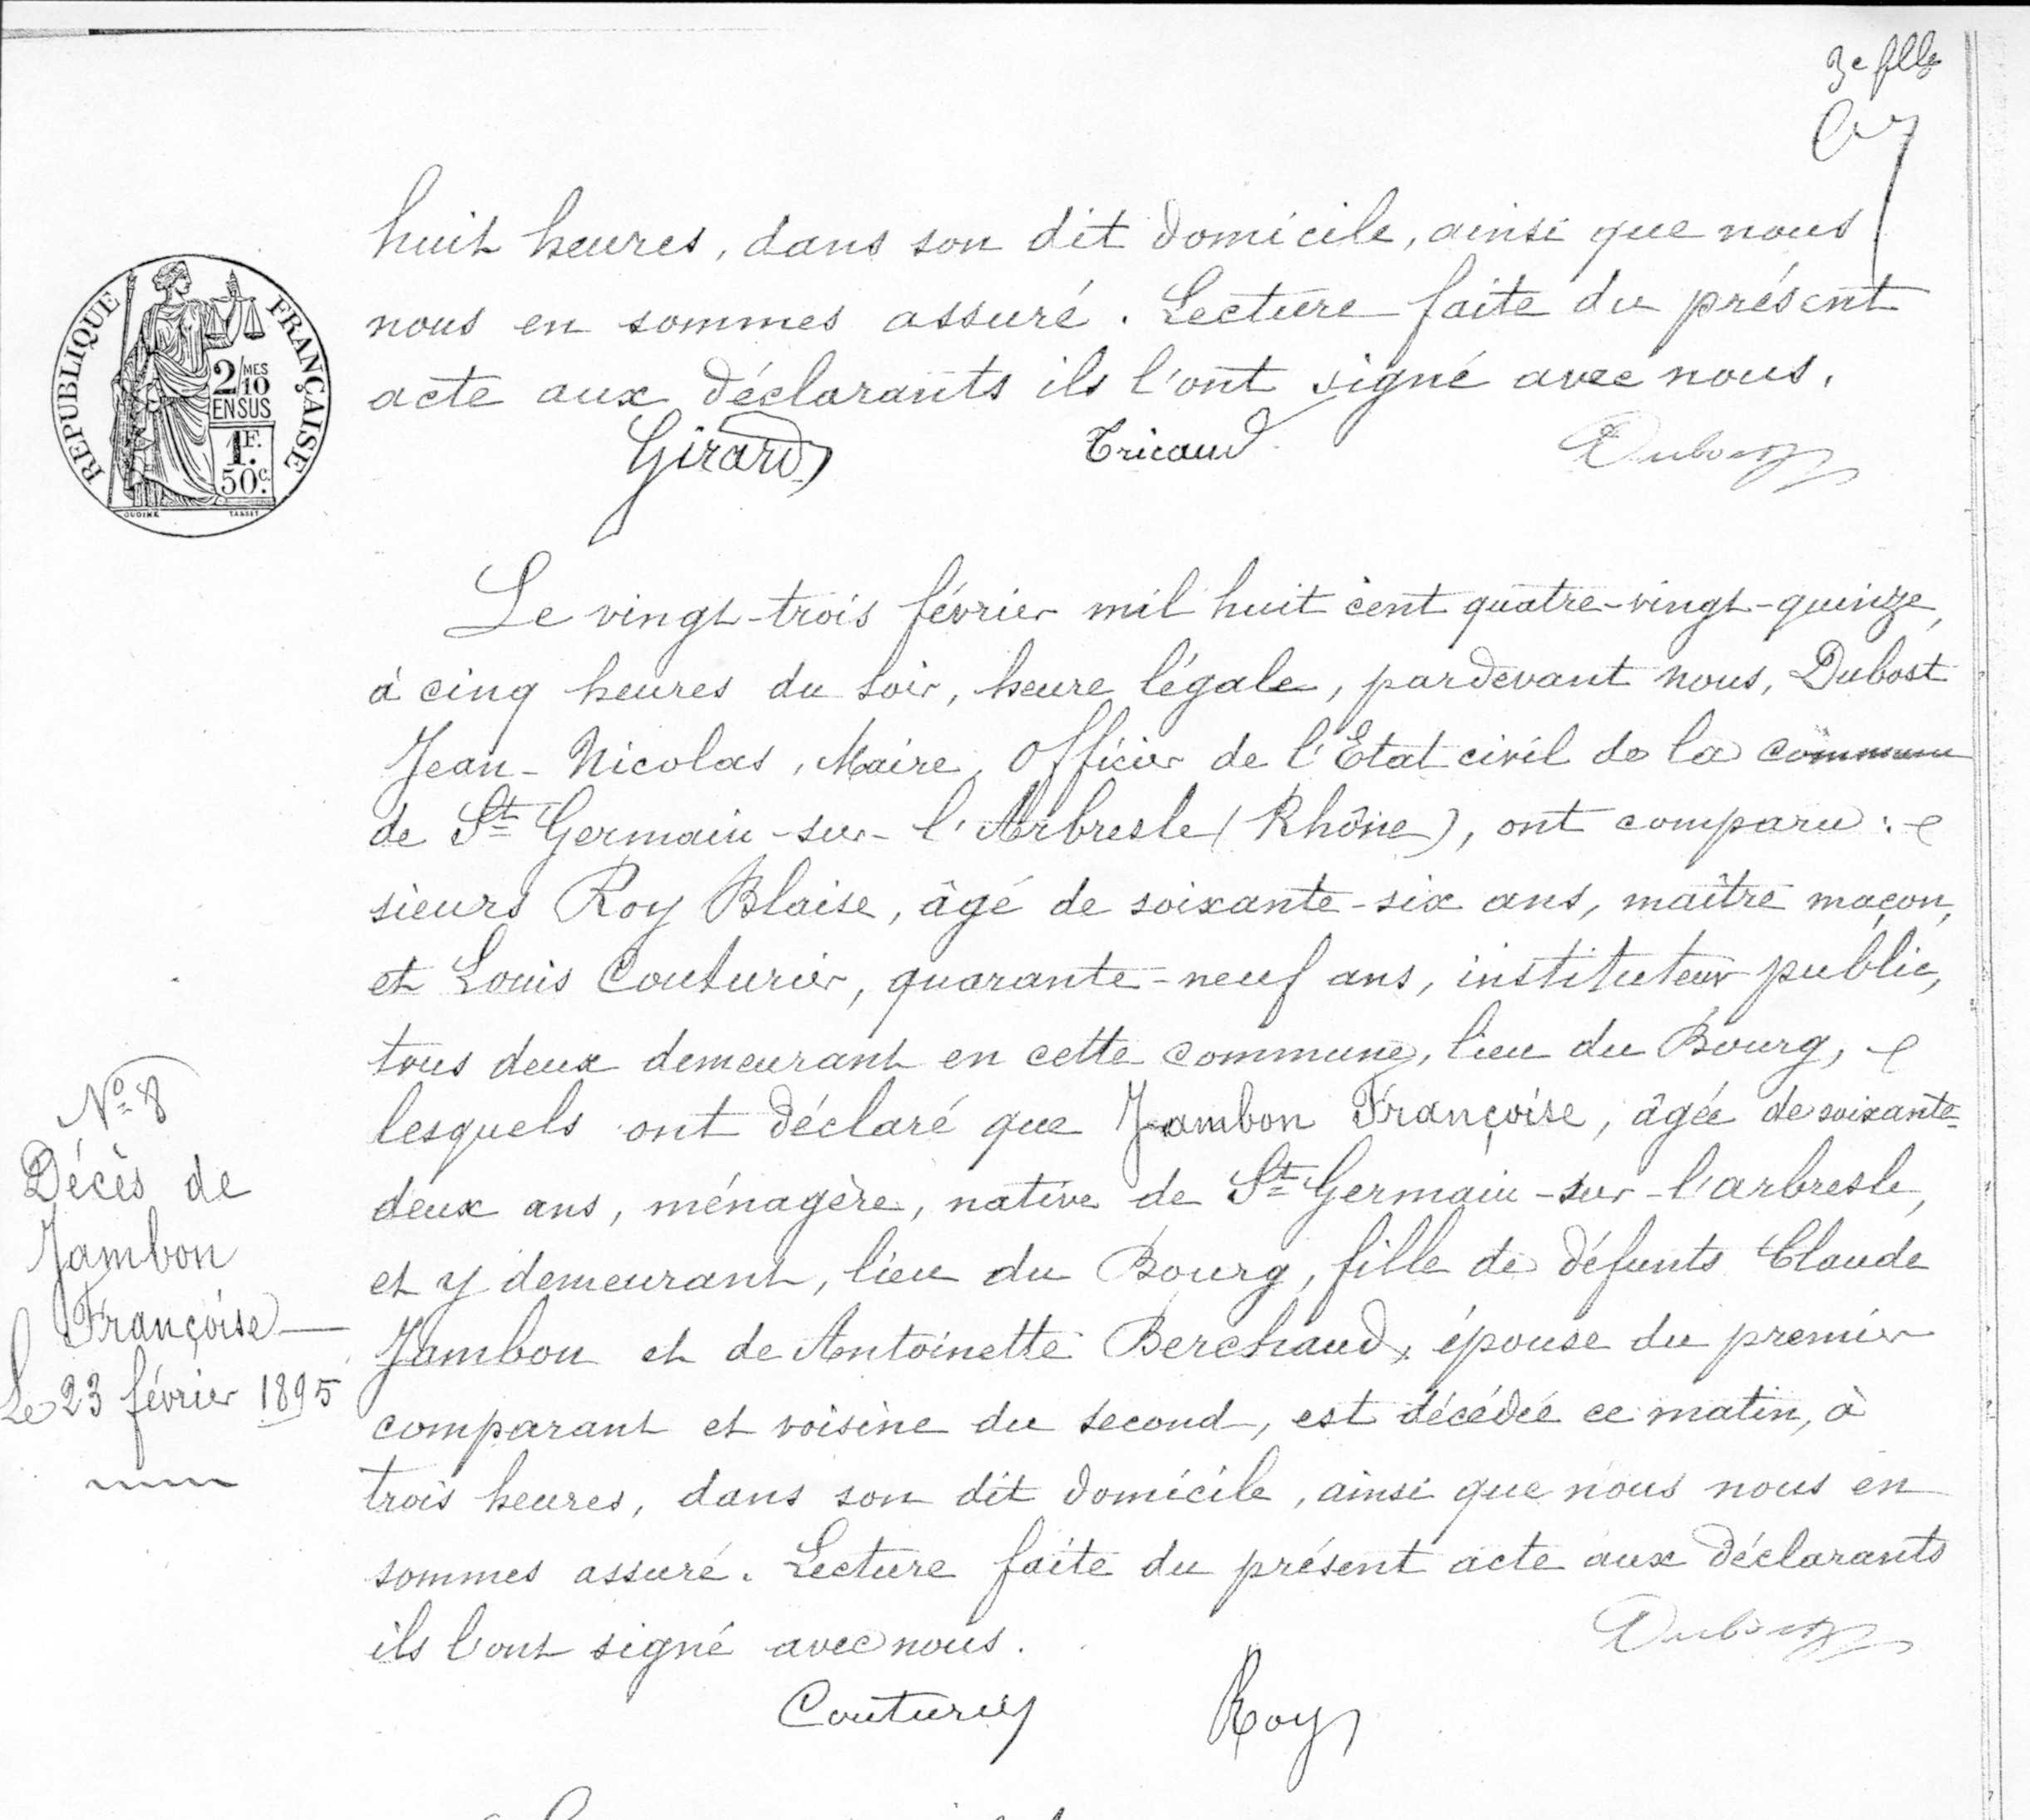 3e flle
huit heures, dans son dit domicile, ainsi que nous
nous en sommes assuré. Lecture faite du présent
acte aux déclarants ils l'ont signé avec nous.
Girard Tricaud Dubost
RÉPUBLIQUE FRANÇAISE
2/MES
10
EN SUS
1F.
50c.
OUDINÉ TASSET
Le vingt-trois février mil huit cent quatre-vingt-quinze,
à cinq heures du soir, heure légale, pardevant nous, Dubost
Jean-Nicolas, Maire, Officier de l'Etat civil de la commune
de St Germain-sur-l'Arbresle (Rhône), ont comparu :
sieurs Roy Blaise, âgé de soixante-six ans, maître maçon,
et Louis Couturier, quarante-neuf ans, instituteur public,
tous deux demeurant en cette commune, lieu du Bourg,
lesquels ont déclaré que Jambon Françoise, âgée de soixante-
deux ans, ménagère, native de St Germain-sur-l'arbresle,
et y demeurant, lieu du Bourg, fille de défunts Claude
Jambon et de Antoinette Berchaud, épouse du premier
comparant et voisine du second, est décédée ce matin, à
trois heures, dans son dit domicile, ainsi que nous nous en
sommes assuré. Lecture faite du présent acte aux déclarants
ils l'ont signé avec nous. Dubost
Couturier Roy
No 8
Décès de
Jambon
Françoise
Le 23 février 1895